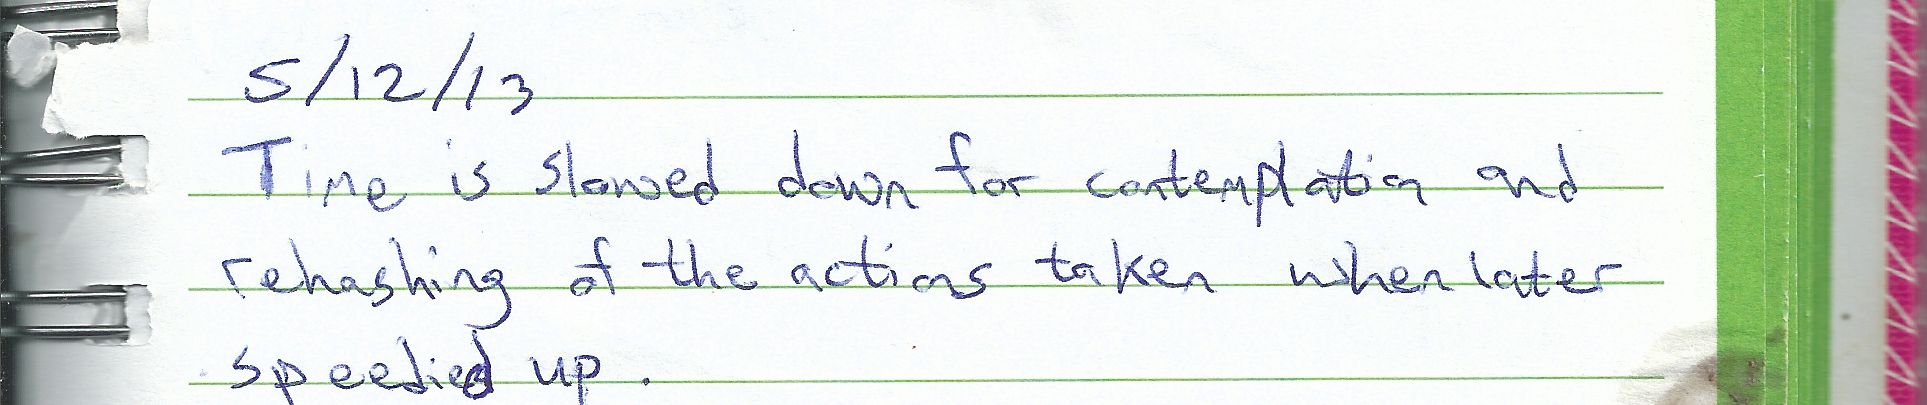 5/12/13
Time is slowed down for contemplation and
rehashing of the actions taken when later
speedied up.